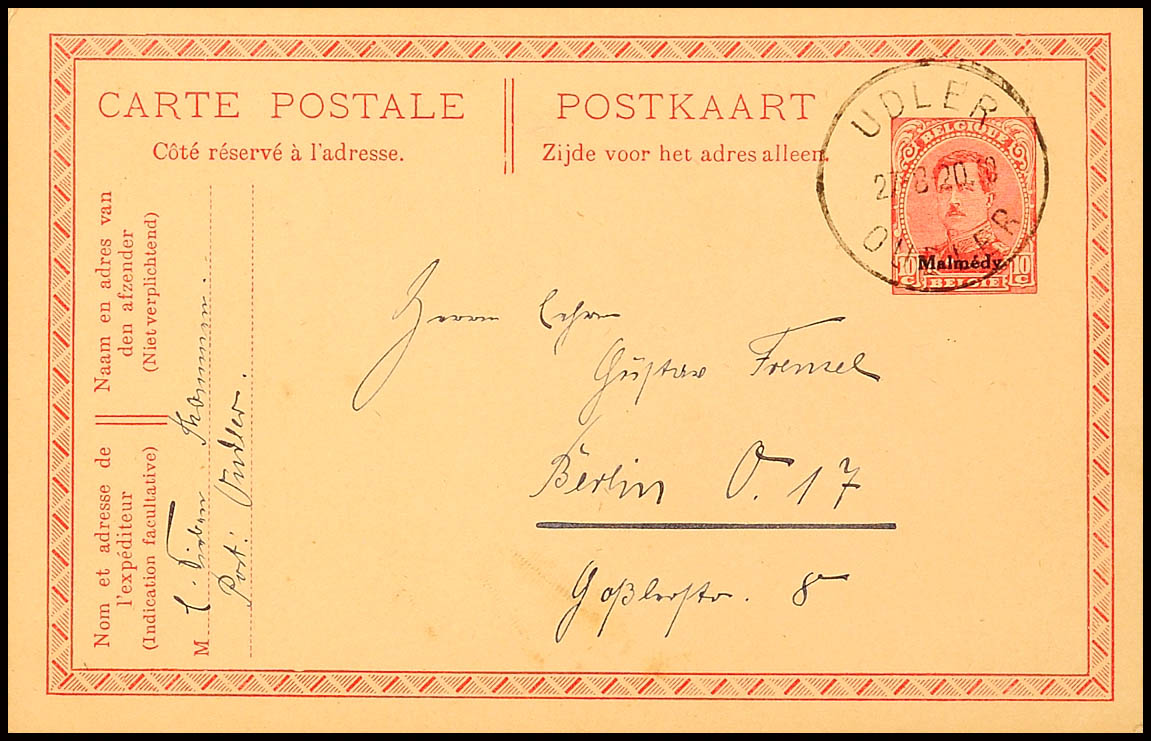 CARTE POSTALE
Côté réservé à l'adresse.
POSTKAART
Zijde voor het adres alleen.
UDLER
27 8 20.
OUDLER
BELGIQUE
Malmédy
10 C BELGIË 10 C
Naam en adres van
den afzender
(Niet verplichtend)
Nom et adresse de
l'expéditeur
(Indication facultative)
M
Post: Oudler.
Herrn
Gustav Frensel
Berlin O. 17
Goßlerstr. 8